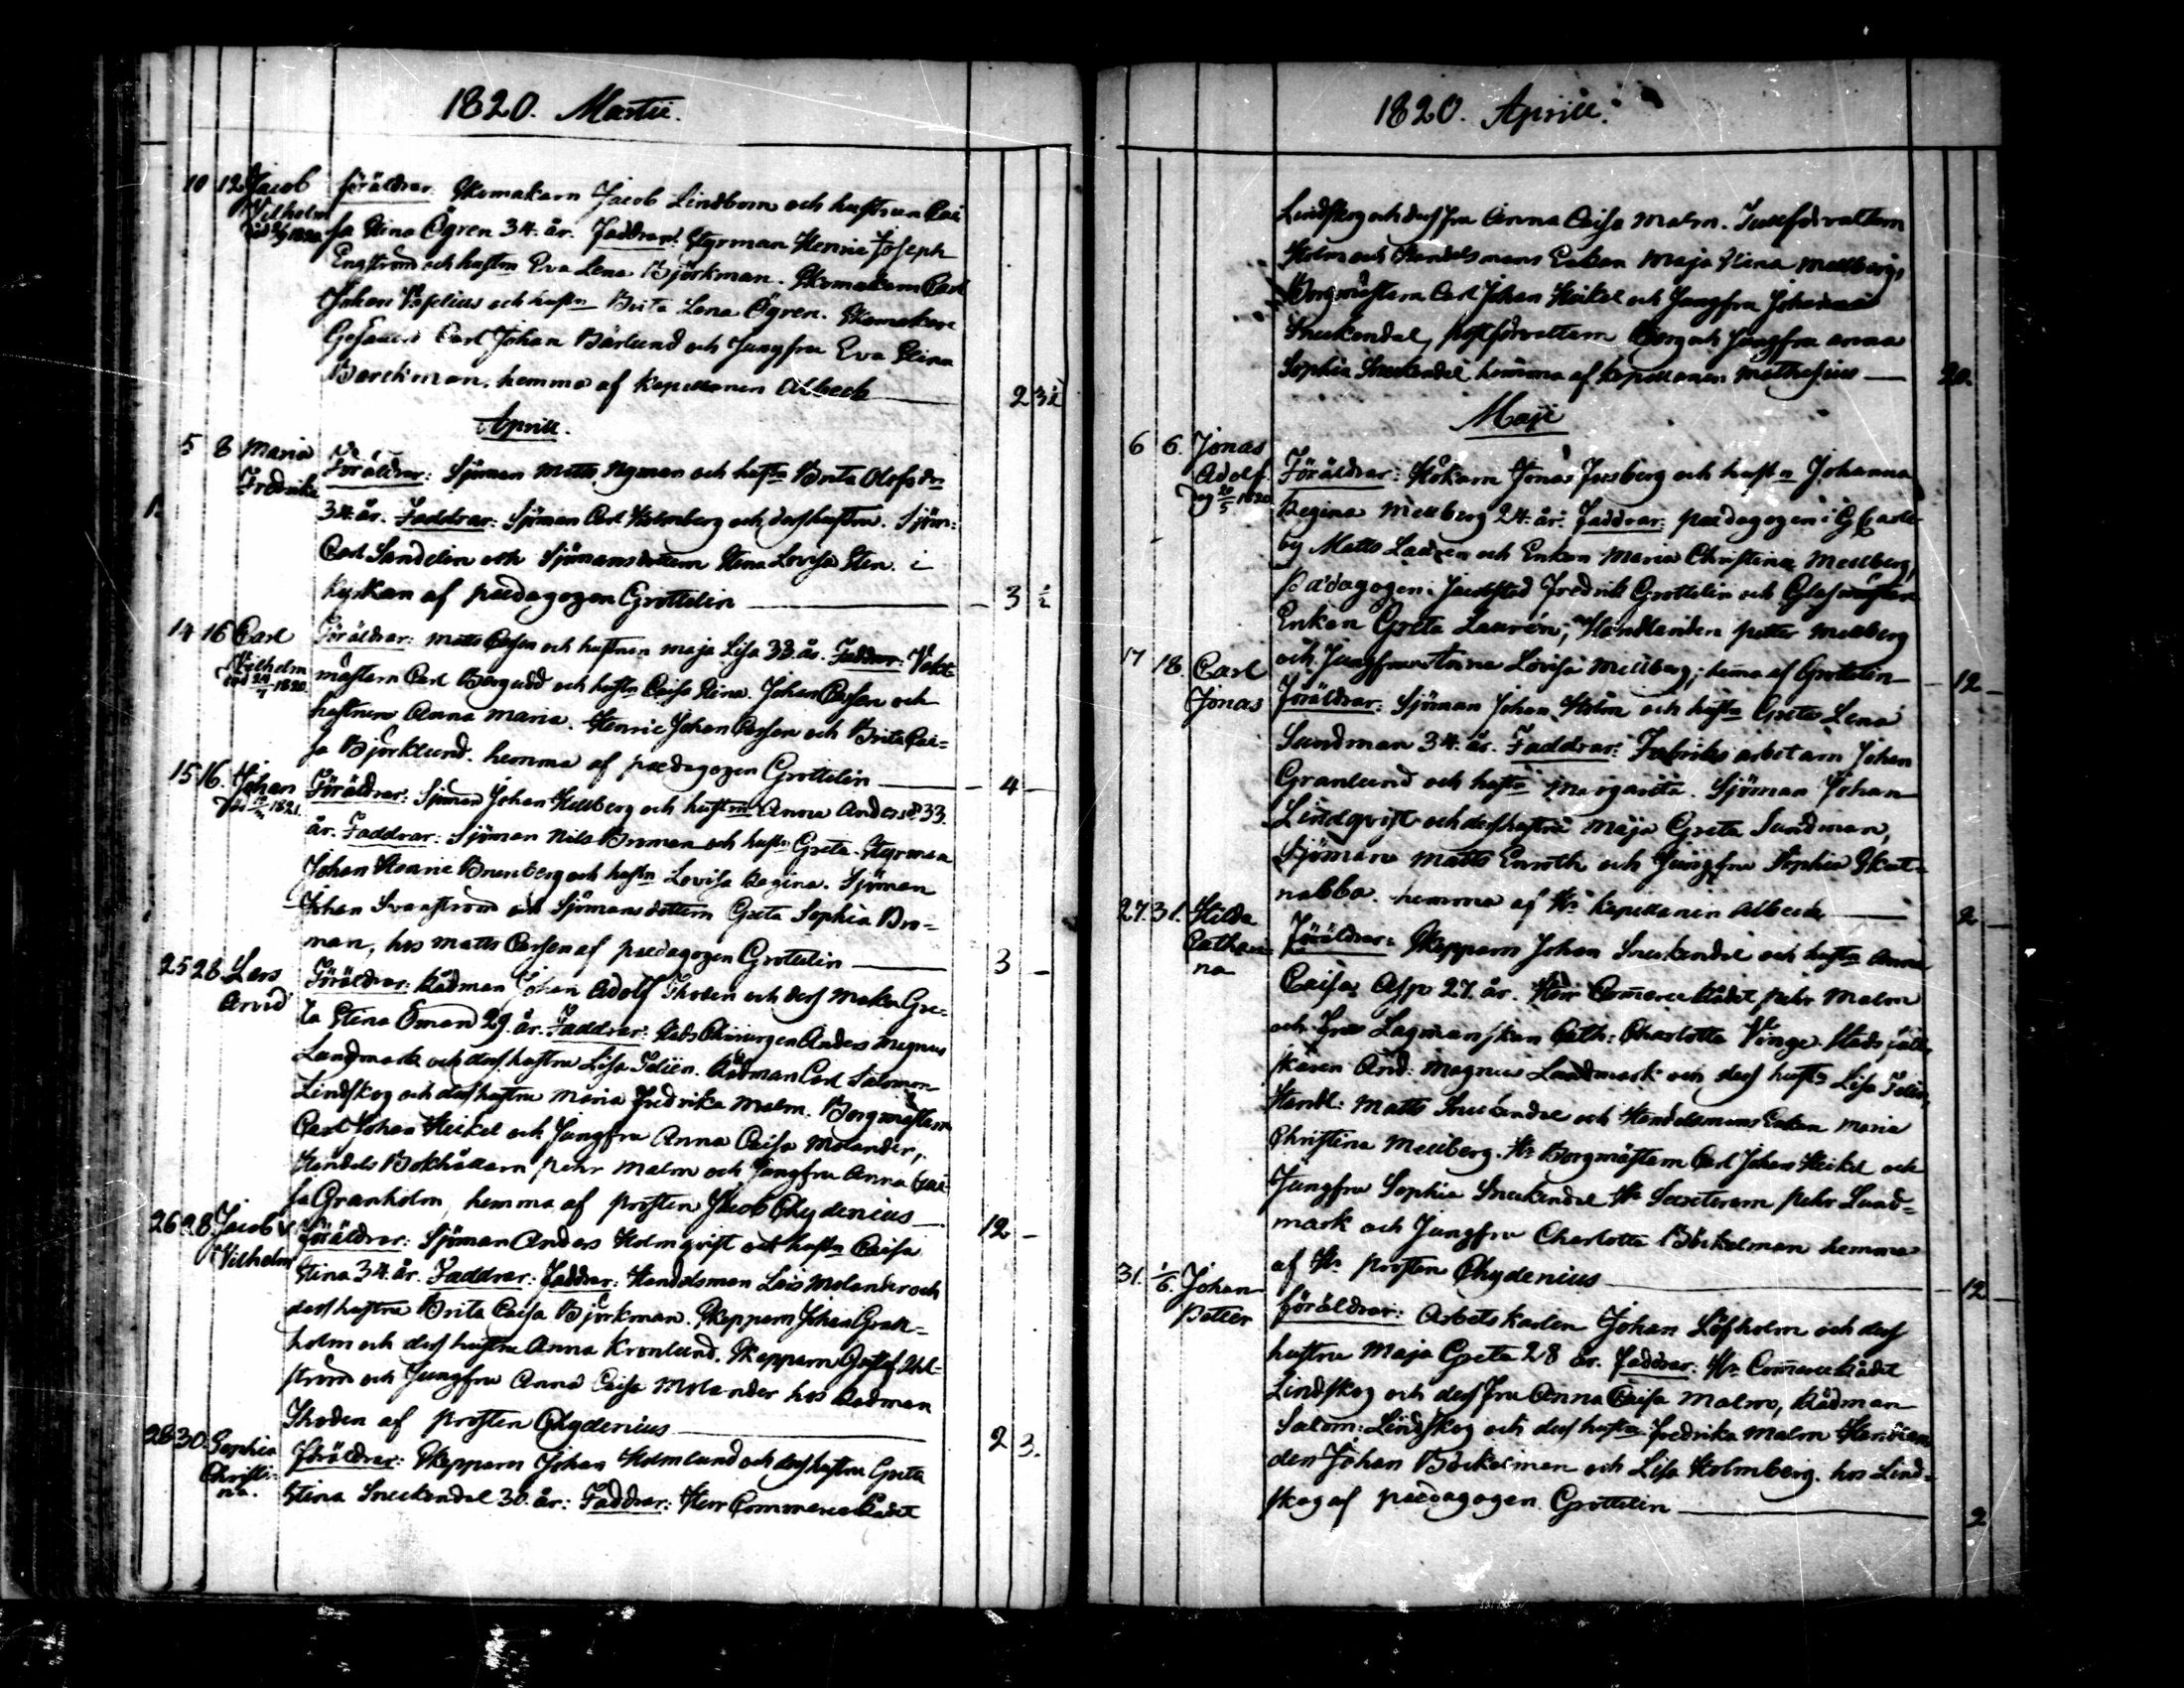 1820. Martii.
10 12 Jacob Vilhelm
föräldrar: Skomakarn Jacob Lindbom och hustrun Cai
sa Stina Ögren 34. år. Faddrar: Styrman Henric Joseph
Engström och hustrn Eva Lena Björkman. Skomakarn Carl
Johan och hustn Brita Lena Ögren. Skomakare
Gesällen Carl Johan Bärlund och Jungfru Eva Stina
Barckman. hemma af Kapellanen Albeck 2 3½
Aprill.
5 8 Maria Fredrika
Föräldrar: Sjöman Matts Nyman och hustn Brita Olofsdr
34. år. Faddrar: Sjöman Carl Holmberg och dess hustru. Sjöm:
Carl Sandelin och Sjömansdottern Stena Lovisa Sten. i
kyrkan af pædagogen Grottelin 3 ½
14 16 Carl Vilhelm
Föräldrar: Matts Carlson och hustrun Maja Lisa 33. år. Faddrar: Vakt-
mästarn Carl Bergudd och hustn Caisa Stina. Johan Carlson och
hustrun Anna Maria. Henric Johan Carlson och Brita Cai-
sa Björklund. hemma af pædagogen Grottelin 4
15 16. Johan
Föräldrar: Sjöman Johan Hellberg och hustrn Anna Andersd. 33.
år. Faddrar: Sjöman Nils Broman och hustn Greta. Styrman
Johan Henric Brunberg och hustn Lovisa Regina. Sjöman
Johan Svanström och Sjömansdottern Greta Sophia Bro-
man, hos Matts Carlson af pædagogen Grottelin 3
25 28 Lars Arvid
Föräldrar: Rådman Johan Adolf Thoden och dess maka Gre-
ta Stina Öman 29. år. Faddrar: Stads Chirurgen Anders Magnus
Landmark och dess hustru Lisa Falin. Rådman Carl Salomon
Lindskog och dess hustru Maria Fredrika Malm. Borgmästarn
Carl Johan Heikel och Jungfru Anna Caisa Molander,
Handels Bokhållarn Pehr Malm och Jungfru Anna Cai-
sa Granholm, hemma af prosten Jacob Chydenius 12
26 28 Jacob Vilhelm
Föräldrar: Sjöman Anders Holmqvist och hustn Caisa
Stina 34. år. Faddrar: Faddrar: Handelsman Lars Molander och
dess hustru Brita Caisa Björkman. Skepparn Johan Gran-
holm och dess hustru Anna Kronlund. Skepparn Gustaf
ström och Jungfru Anna Caisa Molander hos Rådman
Thoden af prosten Chydenius 2 3.
28 30. Sophia Christi-
na.
föräldrar: Skepparn Johan Holmlund och dess hustru Greta
Stina Sneckendal 30. år: Faddrar: Herr Commerce Rådet
1820. Aprill.
Lindskog och dess fru Anna Caisa Malm. Tullförvaltarn
Holm och Handelsmans Enkan Maja Stina Mellberg,
Borgmästarn Carl Johan Heikel och Jungfru Johanna
Sneckendal, postförvaltarn Borg och Jungfru Anna
Sophia Sneckendal hemma af Kapellanen Mathesius 20.
Maji
6 6. Jonas Adolf
Föräldrar: Hökarn Jonas Forsberg och hustn Johanna
Regina Mellberg 24. år: Faddrar: pædagogen i G Carle-
by Matts Laurén och Enkan Maria Christina Mellberg,
pædagogen i Jacobstad Fredrik Grottelin och Glasmästare
Enkan Greta Laurén; Handlanden petter Mellberg
och Jungfrun Anna Lovisa Mellberg; hema af Grottelin 12
17 18. Carl Jonas
Föräldrar: Sjöman Johan Holm och hustn Greta Lena
Sundman 34. år. Faddrar: Fabriks arbetarn Johan
Granlund och hustn Margareta. Sjöman Johan
Lindqvist och dess hustru Maja Greta Sundman,
Sjömann Matts Enroth och Jungfru Sophia Skat-
nabba. hemma af Hr Kapellanen Albeck 2
27. 31. Hilda Cathari-
na
föräldrar: Skepparn Johan Sneckendal och hustn Anna
Caisa Asp 27. år. Herr Commerce Rådet Pehr Malm
och Fru Lagmanskan Cath: Charlotta Vinge. Stads fält-
skären And: Magnus Landmark och dess hustn Lisa Falin,
Handl: Matts Sneckendal och Handelsmans Enkan Maria
Christina Mellberg. Hr Borgmästarn Carl Johan Heikel och
Jungfru Sophia Sneckendal Hr Secretern Pehr Land-
mark och Jungfru Charlotta Böckelman hemma
af Hr prosten Chydenius 12
31. 1/6. Johan Petter
föräldrar: Arbetskarlen Johan Löfholm och dess
hustru Maja Greta 28 år. Faddrar: Hr Commerce Rådet
Lindskog och dess fru Anna Caisa Malm, Rådman
Salom: Lindskog och dess hustru Fredrika Malm Handlan-
den Johan Böckelman och Lisa Holmberg. hos Lind-
skog af pædagogen Grottelin 2